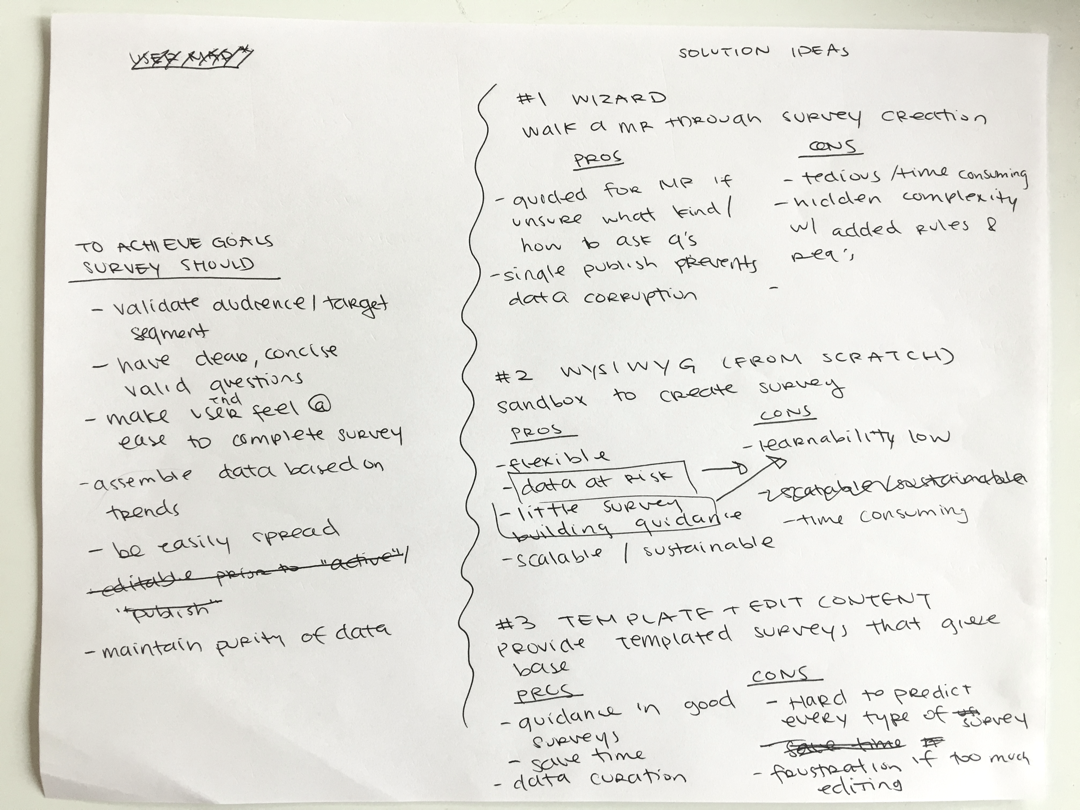 SOLUTION IDEAS
TO ACHIEVE GOALS
SURVEY SHOULD
- validate audience / target
segment
- have clear, concise
valid questions
- make END USER feel @
ease to complete survey
- assemble data based on
trends
- be easily spread
- editable prior to "active" /
"publish"
- maintain purity of data
#1 WIZARD
WALK a MR through SURVEY CREATION
PROS
- guided for MR if
unsure what kind /
how to ask q's
- single publish prevents
data corruption
CONS
- tedious / time consuming
- hidden complexity
w/ added rules &
req's
-
#2 WYSIWYG (FROM SCRATCH)
sandbox to create survey
PROS
- flexible
- data at risk
- little survey
building guidance
- scalable / sustainable
CONS
- learnability low
- scalable / sustainable
- time consuming
#3 TEMPLATE + EDIT CONTENT
PROVIDE TEMPLATED SURVEYS that give
base
PROS
- guidance in good
surveys
- save time
- data curation
CONS
- Hard to predict
every type of survey
- save time
- frustration if too much
editing